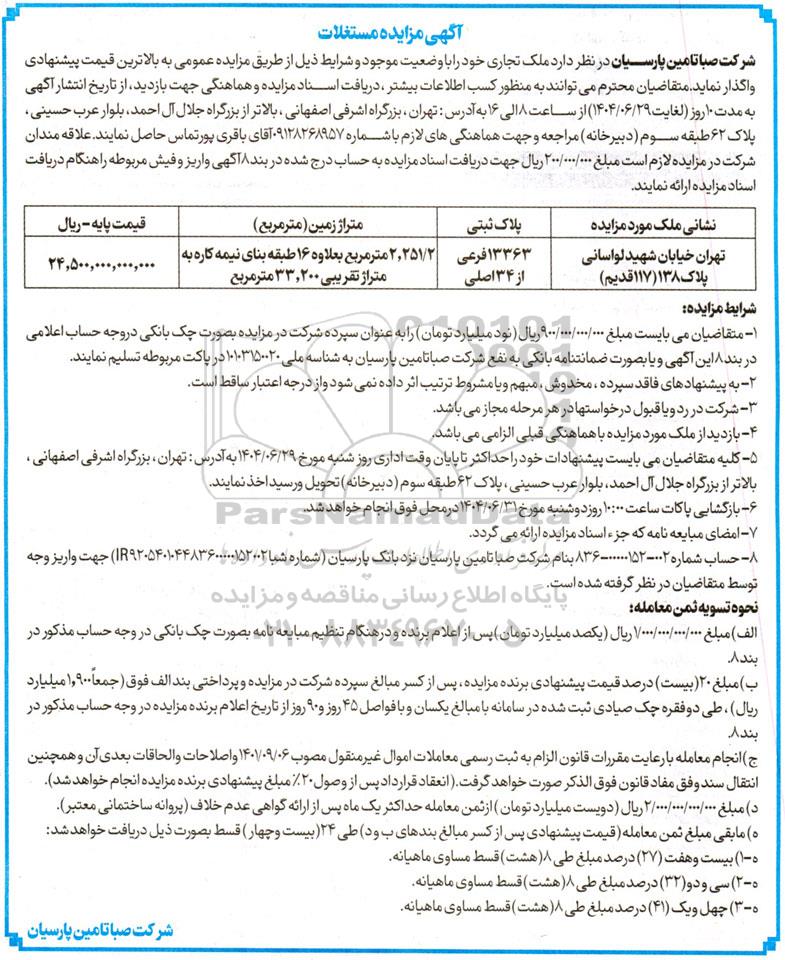 آگهی مزایده مستغلات
شرکت صبا تامین پارسیان در نظر دارد ملک تجاری خود را با وضعیت موجود و شرایط ذیل از طریق مزایده عمومی به بالاترین قیمت پیشنهادی
واگذار نماید. متقاضیان محترم می توانند به منظور کسب اطلاعات بیشتر ، دریافت اسناد مزایده و هماهنگی جهت بازدید، از تاریخ انتشار آگهی
به مدت ۱۰ روز (لغایت ۱۴۰۴/۰۶/۲۹) از ساعت ۸ الی ۱۶ به آدرس : تهران ، بزرگراه اشرفی اصفهانی ، بالاتر از بزرگراه جلال آل احمد، بلوار عرب حسینی ،
پلاک ۶۲ طبقه سوم (دبیرخانه) مراجعه و جهت هماهنگی های لازم با شماره ۰۹۱۲۸۲۶۸۹۵۷ آقای باقری پور تماس حاصل نمایند. علاقه مندان
شرکت در مزایده لازم است مبلغ ۲۰۰/۰۰۰/۰۰۰ ریال جهت دریافت اسناد مزایده به حساب درج شده در بند ۸ آگهی واریز و فیش مربوطه را هنگام دریافت
اسناد مزایده ارائه نمایند.
نشانی ملک مورد مزایده پلاک ثبتی متراژ زمین (مترمربع) قیمت پایه - ریال
تهران خیابان شهید لواسانی ۱۳۳۶۳ فرعی ۲,۲۵۱/۲ مترمربع بعلاوه ۱۶ طبقه بنای نیمه کاره به ۲۴,۵۰۰,۰۰۰,۰۰۰,۰۰۰
پلاک ۱۳۸ (۱۱۷ قدیم) از ۳۴ اصلی متراژ تقریبی ۳۳,۲۰۰ مترمربع
شرایط مزایده:
۱- متقاضیان می بایست مبلغ ۹۰۰/۰۰۰/۰۰۰/۰۰۰ ریال (نود میلیارد تومان) را به عنوان سپرده شرکت در مزایده بصورت چک بانکی در وجه حساب اعلامی
در بند ۸ این آگهی و یا بصورت ضمانتنامه بانکی به نفع شرکت صبا تامین پارسیان به شناسه ملی ۱۰۱۰۳۱۵۰۰۲۰ در پاکت مربوطه تسلیم نمایند.
۲- به پیشنهادهای فاقد سپرده ، مخدوش ، مبهم و یا مشروط ترتیب اثر داده نمی شود و از درجه اعتبار ساقط است.
۳- شرکت در رد و یا قبول درخواستها در هر مرحله مجاز می باشد.
۴- بازدید از ملک مورد مزایده با هماهنگی قبلی الزامی می باشد.
۵- کلیه متقاضیان می بایست پیشنهادات خود را حداکثر تا پایان وقت اداری روز شنبه مورخ ۱۴۰۴/۰۶/۲۹ به آدرس : تهران ، بزرگراه اشرفی اصفهانی ،
بالاتر از بزرگراه جلال آل احمد، بلوار عرب حسینی ، پلاک ۶۲ طبقه سوم (دبیرخانه) تحویل و رسید اخذ نمایند.
۶- بازگشایی پاکات ساعت ۱۰:۰۰ روز دوشنبه مورخ ۱۴۰۴/۰۶/۳۱ در محل فوق انجام خواهد شد.
ParsNamadData
۷- امضای مبایعه نامه که جزء اسناد مزایده ارائه می گردد.
۸- حساب شماره ۸۳۶-۰۰۰۰۰۱۵۲-۰۰۲ بنام شرکت صبا تامین پارسیان نزد بانک پارسیان (شماره شبا IR۹۲۰۵۴۰۱۰۴۴۸۳۶۰۰۰۰۰۱۵۲۰۰۲) جهت واریز وجه
توسط متقاضیان در نظر گرفته شده است.
پایگاه اطلاع رسانی مناقصه و مزایده
نحوه تسویه ثمن معامله:
۰۲۱-۸۸۳۴۹۶۷۰-۵
الف) مبلغ ۱/۰۰۰/۰۰۰/۰۰۰/۰۰۰ ریال (یکصد میلیارد تومان) پس از اعلام برنده و در هنگام تنظیم مبایعه نامه بصورت چک بانکی در وجه حساب مذکور در
بند ۸.
ب) مبلغ ۲۰ (بیست) درصد قیمت پیشنهادی برنده مزایده ، پس از کسر مبالغ سپرده شرکت در مزایده و پرداختی بند الف فوق (جمعاً ۱,۹۰۰ میلیارد
ریال) ، طی دو فقره چک صیادی ثبت شده در سامانه با مبالغ یکسان و با فواصل ۴۵ روز و ۹۰ روز از تاریخ اعلام برنده مزایده در وجه حساب مذکور در
بند ۸.
ج) انجام معامله با رعایت مقررات قانون الزام به ثبت رسمی معاملات اموال غیرمنقول مصوب ۱۴۰۱/۰۹/۰۶ و اصلاحات والحاقات بعدی آن و همچنین
انتقال سند وفق مفاد قانون فوق الذکر صورت خواهد گرفت. (انعقاد قرارداد پس از وصول ۲۰٪ مبلغ پیشنهادی برنده مزایده انجام خواهد شد).
د) مبلغ ۲/۰۰۰/۰۰۰/۰۰۰/۰۰۰ ریال (دویست میلیارد تومان) از ثمن معامله حداکثر یک ماه پس از ارائه گواهی عدم خلاف (پروانه ساختمانی معتبر).
ه) مابقی مبلغ ثمن معامله (قیمت پیشنهادی پس از کسر مبالغ بندهای ب و د) طی ۲۴ (بیست و چهار) قسط بصورت ذیل دریافت خواهد شد:
ه-۱) بیست و هفت (۲۷) درصد مبلغ طی ۸ (هشت) قسط مساوی ماهیانه.
ه-۲) سی و دو (۳۲) درصد مبلغ طی ۸ (هشت) قسط مساوی ماهیانه.
ه-۳) چهل و یک (۴۱) درصد مبلغ طی ۸ (هشت) قسط مساوی ماهیانه.
شرکت صبا تامین پارسیان